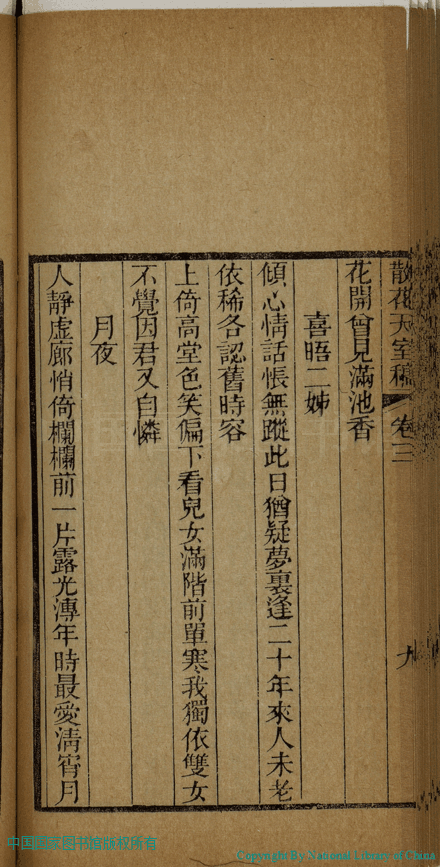 散花天室稿 卷三 九
花開曾見滿池香
喜晤二姊
傾心情話悵無蹤此日猶疑夢裏逢二十年來人未老
依稀各認舊時容
上倚高堂色笑偏下看兒女滿階前單寒我獨依雙女
不覺因君又自憐
月夜
人靜虛廊悄倚欄欄前一片露光漙年時最愛淸宵月
中国国家图书馆版权所有
Copyright By National Library of China